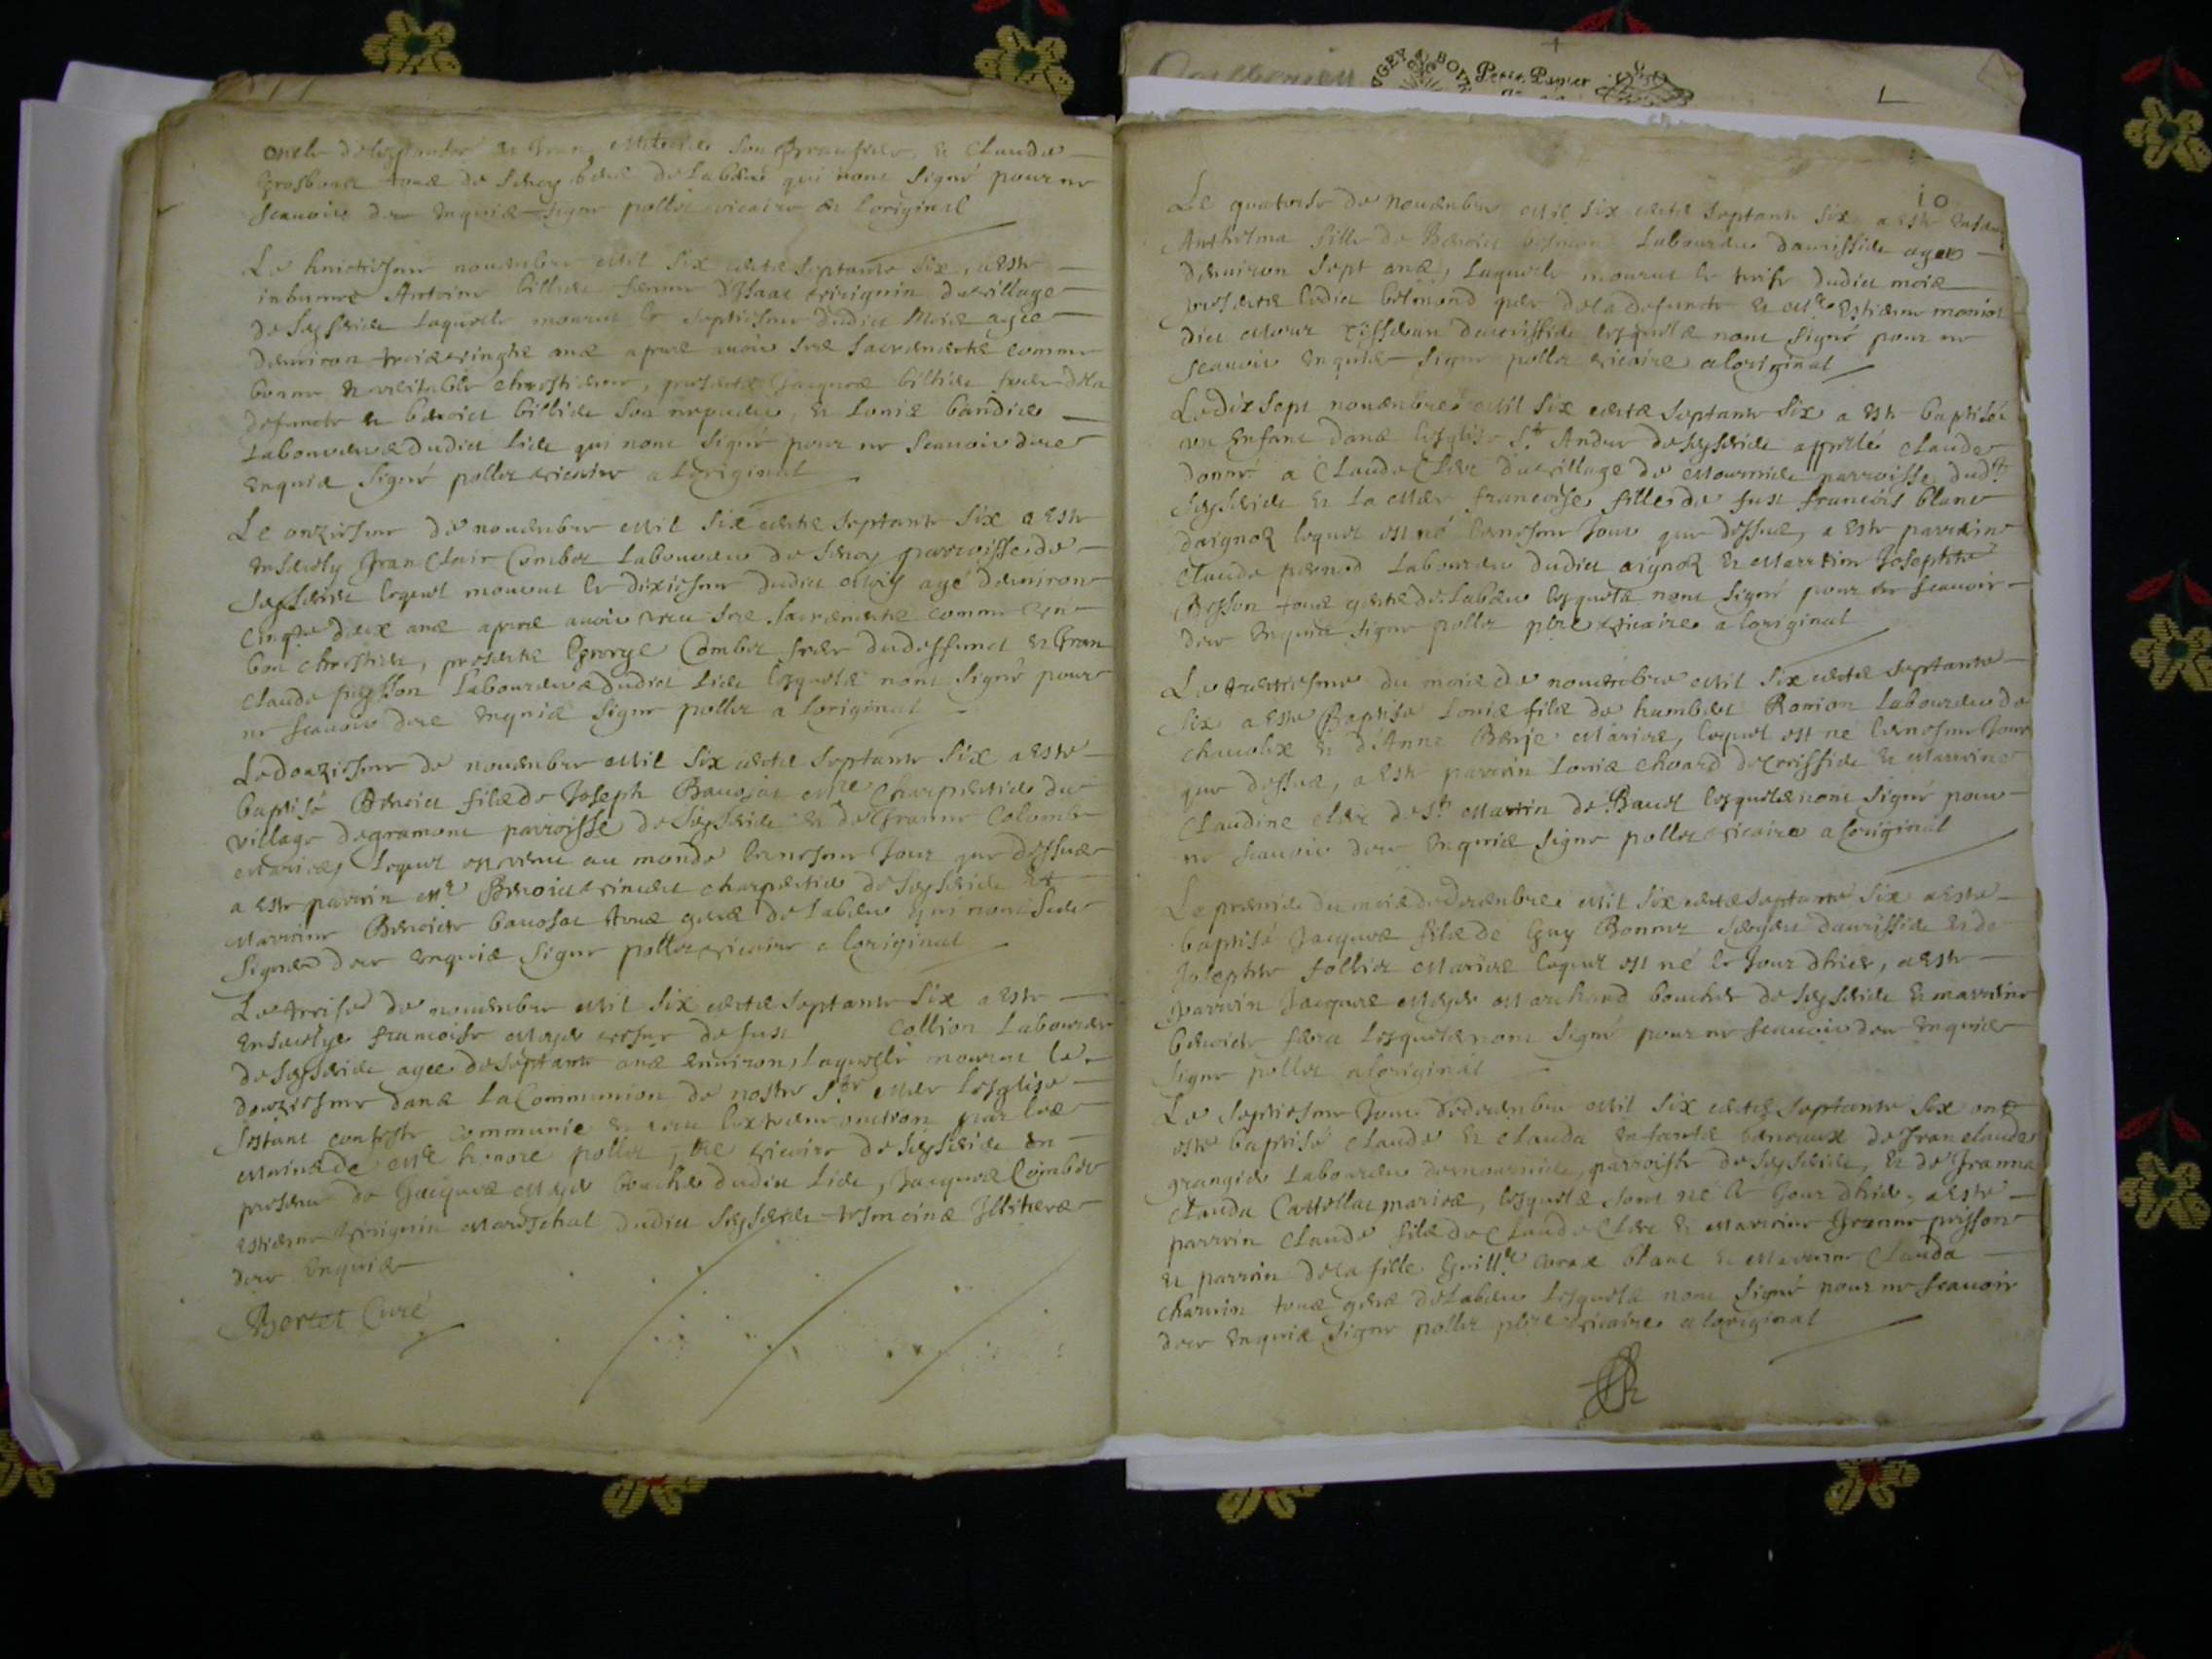 oncle de lespouse et Jean son Beaufrere, et Claude
Grosbond tous de Serey gens de labeur qui nont signé pour ne
scauoir de ce enquis signe pollet vicaire a loriginal
Le huictiesme nouembre Mil six cents septante six, a este
inhumee Antoine billiet femme d'Isaac viriguin du village
de Seyssieu laquelle mourut le septiesme dudict Mois agee
denuiron trois vingts ans apres auoir ses sacrements comme
bonne et veritable chrestienne, presents Jacques billiet frere de la
defuncte et benoict billiet son nepueu, et Louis
laboureurs dudict lieu qui nont signé pour ne scauoir de ce
enquis signé pollet vicaire a loriginal
Le onziesme de nouembre Mil six cents septante six a este
enseuely Jean Clair Combet laboureur de Serey parroisse de
Seyssieu lequel mourut le dixiesme dudict mois agé denuiron
cinqte deux ans apres auoir receu ses sacrements comme vn
bon chrestien, presents George Combet frere du deffunct et Jean
Claude laboureurs dudict lieu lesquels nont signé pour
ne scauoir de ce enquis signe pollet a loriginal
Le douziesme de nouembre Mil six cents septante six a este
baptisé Benoict fils de Joseph Bauosat Mre Charpentier du
village de gramont parroisse de Seyssieu et de Jeanne Colombe
mariés, lequel est venu au monde le mesme Jour que dessus
a este parrin Mr Benoict vincent charpentier de Seyssieu et
marrine Benoicte bauosat tous gens de labeur qui nont sceu
signer de ce enquis signe pollet vicaire a loriginal
Le treise de nouembre Mil six cents septante six a este
enseuelye francoise vefue de fust Collion laboureur
de Seyssieu agee de septante ans enuiron, laquelle mourut le
douziesme dans la Communion de nostre Ste mere lesglise
sestant confesse communie et receu lextreme onction par les
mains de Mre honore pollet, pbre vicaire de Seyssieu en
presence de Jacques boucher dudict lieu, Jacques Combet
estienne viriguin mareschal dudict Seyssieu tesmoins Illiterés
de ce enquis
Bertet Curé
PETIT PAPIER
10
Le quatorse de nouembre Mil six cents septante six a este enseuely
Anthelma fille de Benoict laboureur agee
denuiron sept ans, laquelle mourut le treise dudict mois
presents ledict pere de la defuncte et Mr Estienne
dict tisseran lesquels nont signé pour ne
scauoir enquis signe pollet vicaire a loriginal
Le dix sept nouembre Mil six cents septante six a este baptisé
vn enfant dans lesglise St Andre de Seyssieu appellé Claude
donné a Claude Clerc du village de parroisse dudt
Seyssieu et la mere francoise fille de fust francois blanc
daignoz lequel est né le mesme Jour que dessus, a este parrain
Claude laboureur dudict aignoz et marrine Josephte
Besson tous gents de labeur lesquels nont signé pour ne scauoir
de ce enquis signe pollet pbre vicaire a loriginal
Le trentiesme du mois de nouembre Mil six cents septante
six a este Baptise Louis fils de humbert Romion laboureur de
chauolex et d'Anne mariés, lequel est né le mesme Jour
que dessus, a este parrin Louis et marrine
Claudine Clerc de St Martin de Bauel lesquels nont signé pour
ne scauoir de ce enquis signe pollet vicaire a loriginal
Le premier du mois de decembre Mil six cents septante six a este
baptisé Jacques fils de Guy Bonnet et de
Josephte follier mariés lequel est né le Jour dhier, a este
parrin Jacques marchand boucher de Seyssieu et marrine
benoicte lesquels nont signé pour ne scauoir de ce enquis
signe pollet a loriginal
Le septiesme Jour de decembre Mil six cents septante six ont
este baptisé Claude et Clauda enfants de Jean claude
grangier laboureur parroisse de Seyssieu, et de Jeanna
Clauda Castellat mariés, lesquels sont né le Jour dhier, a este
parrin Claude fils de Claude Clerc et marrine Jeanne
et parrin de la fille blanc et marrine Clauda
charuin tous gens de labeur lesquels nont signé pour ne scauoir
de ce enquis signe pollet pbre vicaire a loriginal